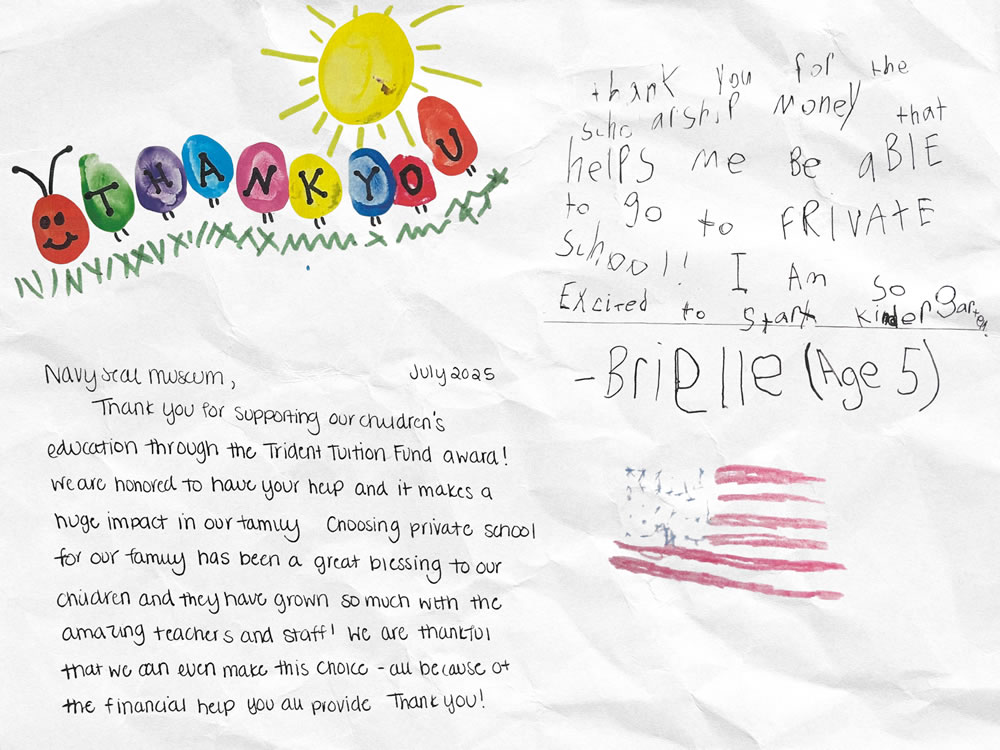 THANK YOU
thank you for the
scholarship money that
helps me Be aBlE
to go to FRIVATE
school! I Am so
Excired to start kinderGarten
- Brielle (Age 5)
Navy Seal Museum,
July 2025
Thank you for supporting our children's
education through the Trident Tuition Fund award!
We are honored to have your help and it makes a
huge impact in our family Choosing private school
for our family has been a great blessing to our
children and they have grown so much with the
amazing teachers and staff! We are thankful
that we can even make this choice - all because of
the financial help you all provide Thank you!